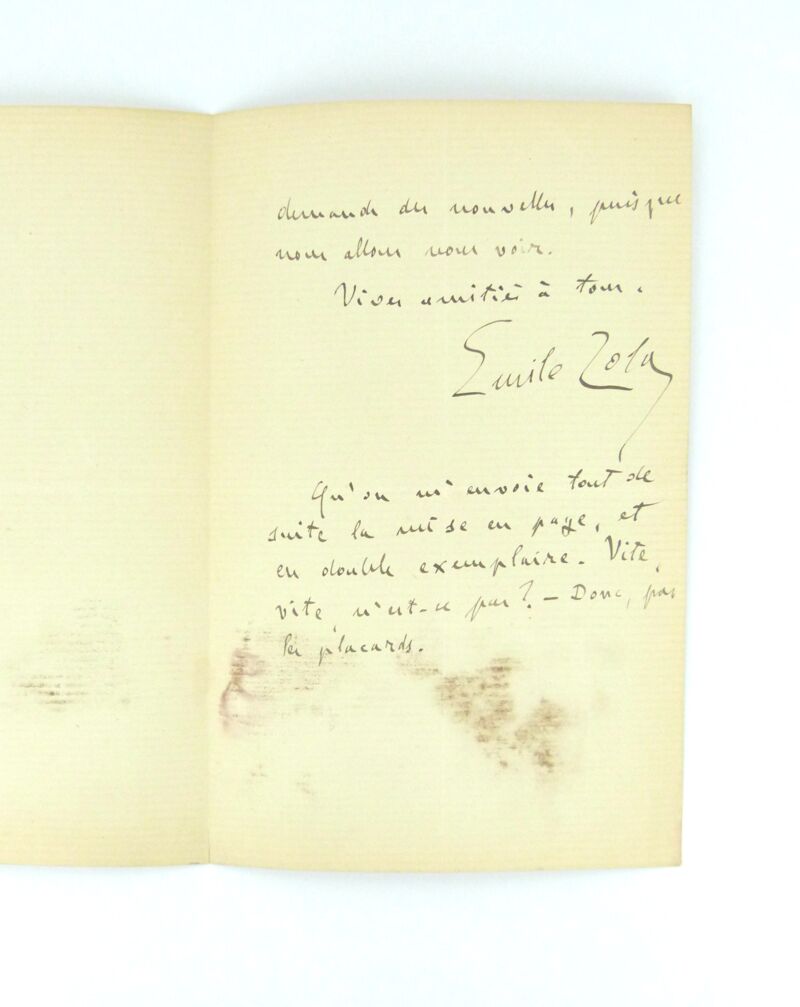 demande des nouvelles, puisque
nous allons nous voir.
Vives amitiés à tous.
Emile Zola
Qu'on m'envoie tout de
suite la mise en page, et
en double exemplaire. Vite,
vite, n'est-ce pas ? — Donc, pas
les placards.